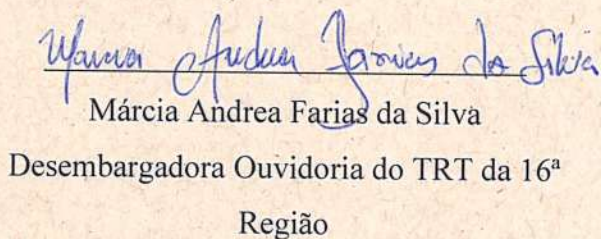 Marcia Andrea Farias da Silva
Márcia Andrea Farias da Silva
Desembargadora Ouvidoria do TRT da 16ª
Região